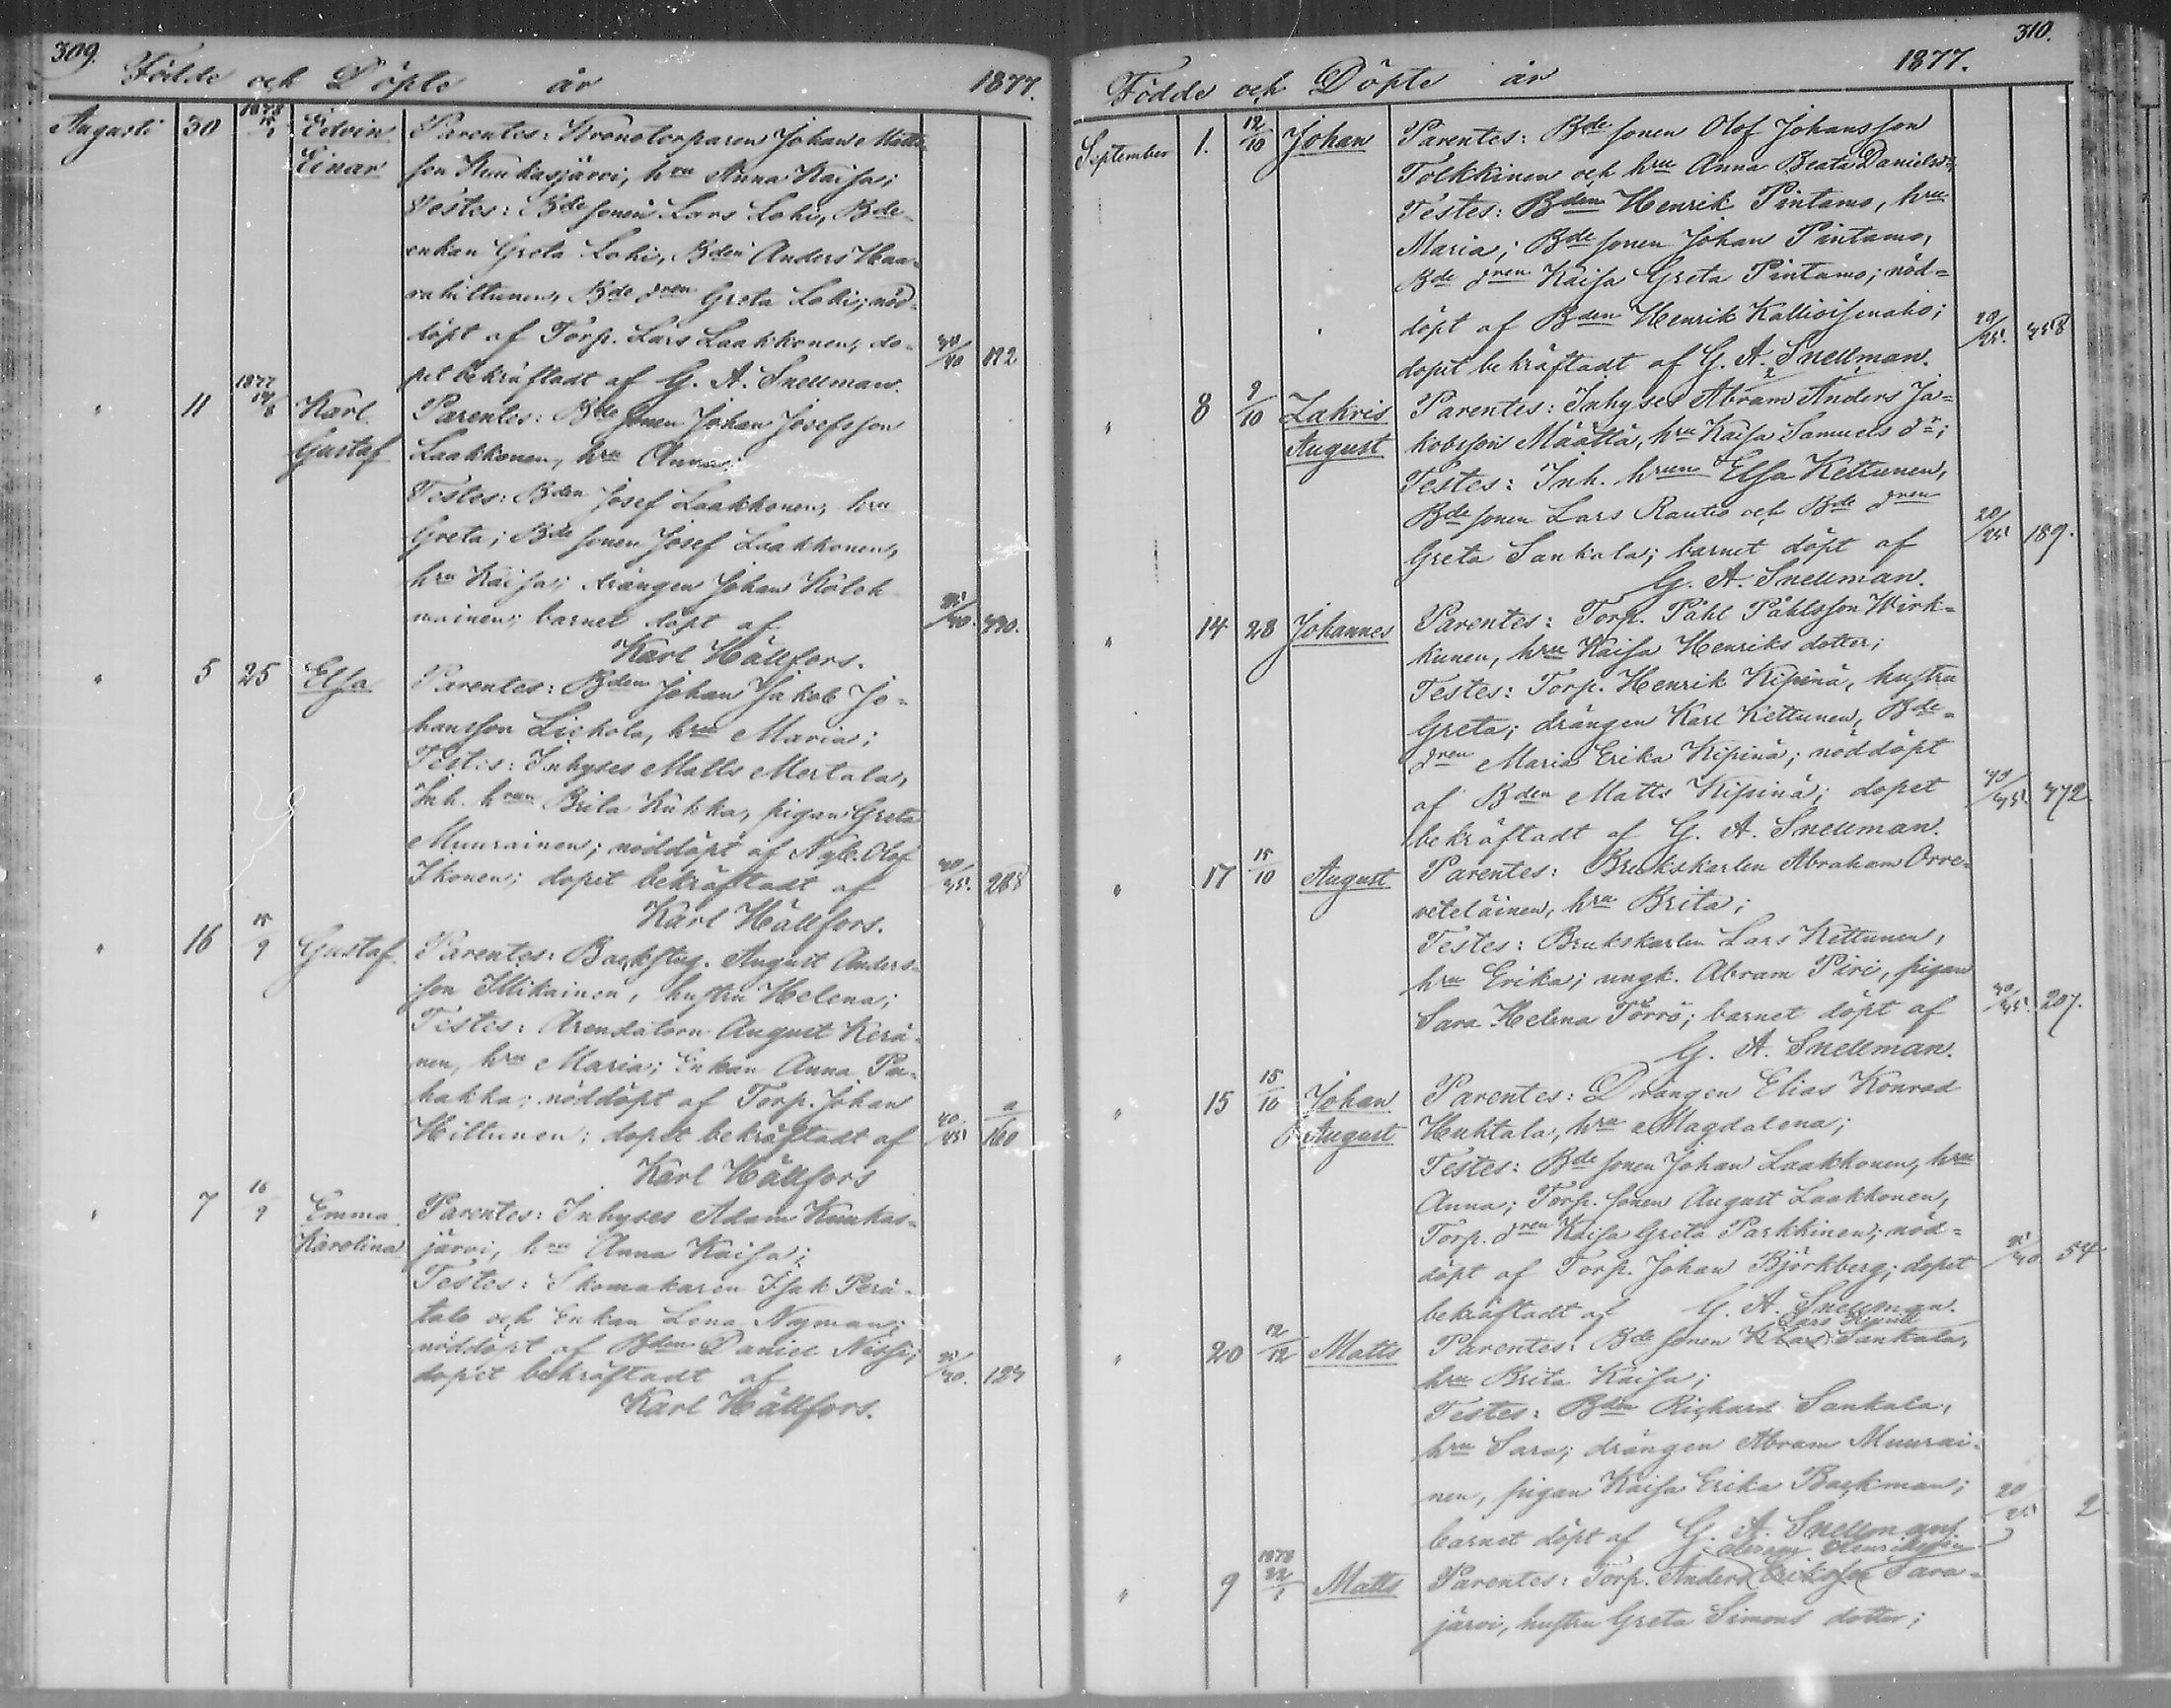 309.
Födde och Döpte år 1877.
Augusti 30 1878 15/1 Edvin Parentes: Kronotorparen Johan Matts
Einar son Kuukasjärvi, hru Anna Kaisa;
Testes: Bdesonen Lars Lohi, Bde
enkan Greta Lohi, Bden Anders Haa-
rahiltunen, Bde dren Greta Lohi; nöd-
döpt af Torp. Lars Laakkonen, do-
pet bekräftadt af G. A. Snellman. 30/40 192
" 11 1877 19/8 Karl Parentes: Bde sonen Johan Josefsson
Gustaf Laakkonen, hru Anna;
Testes: Bden Josef Laakkonen, hru
Greta; Bde sonen Josef Laakkonen,
hru Kaisa; drängen Johan Koleh
mainen; barnet döpt af 35/40. 390.
Karl Hällfors.
" 5 25 Elsa Parentes: Bden Johan Jakob Jo-
hansson Liekola, hru Maria;
Testes: Inhyses Matts Mertala,
Inh. hrun Brita Kukka, pigan Greta
Muurainen; nöddöpt af Nyb. Olof
Ikonen; dopet bekräftadt af 30/35. 268
Karl Hällfors.
" 16 15/9 Gustaf Parentes: Backstug. August Anders-
son Illikainen, hustru Helena;
Testes: Arendatorn August Kerä-
nen, hru Maria; Enkan Anna Pu-
hakka; nöddöpt af Torp. Johan
Hiltunen; dopet bekräftadt af 40/45 a/160
Karl Hällfors
" 7 16/9 Emma Parentes: Inhyses Adam Kuukas-
Karolina järvi, hru Anna Kaisa;
Testes: Skomakaren Isak Perä-
talo och Enkan Lena Nyman;
nöddöpt af Bden Daniel Nissi;
dopet bekräftadt af 35/40. 127
Karl Hällfors.
310.
Födde och Döpte år 1877.
September 1. 12/10 Johan Parentes: Bde sonen Olof Johansson
Tolkkinen och hru Anna Beata Danielsdr
Testes: Bden Henrik Pintamo, hru
Maria; Bde sonen Johan Pintamo,
Bde dren Kaisa Greta Pintamo; nöd-
döpt af Bden Henrik Kallioisenaho;
dopet bekräftadt af G. A. Snellman. 20/25. 358
" 8 9/10 Zakris Parentes: Inhyses Abram Anders Ja-
August kobsson Määttä, hru Kaisa Samuels dr;
Testes: Inh. hrun Elsa Kettunen,
Bde sonen Lars Rautio och Bde dren
Greta Sankala; barnet döpt af 20/25 189.
G. A. Snellman.
" 14 28 Johannes Parentes: Torp. Påhl Påhlsson Wirk-
kunen, hru Kaisa Henriks dotter;
Testes: Torp. Henrik Kipinä, hustru
Greta; drängen Karl Kettunen, Bde-
dren Maria Erika Kipinä; nöddöpt
af Bden Matts Kipinä; dopet 30/35. 372.
bekräftadt af G. A. Snellman.
" 17 15/10 August Parentes: Brukskarlen Abraham Orra-
veteläinen, hru Brita;
Testes: Brukskarlen Lars Kettunen,
hru Erika; ungk. Abram Piri, pigan
Sara Helena Törrö; barnet döpt af 30/35. 207.
G. A. Snellman.
" 15 15/10 Johan Parentes: Drängen Elias Konrad
August Huhtala, hru Magdalena;
Testes: Bde sonen Johan Laakkonen, hru
Anna; Torp. sonen August Laakkonen,
Torp. dren Kaisa Greta Parkkinen; nöd-
döpt af Torp. Johan Björkberg; dopet 35/40 54
bekräftadt af G. A. Snellman.
" 20 12/12 Matts Parentes: Bde sonen Lars Sankala,
hru Brita Kaisa;
Testes: Bden Richard Sankala,
hru Sara; drängen Abram Muurai-
nen, pigan Kaisa Erika Backman; 20/25 2
barnet döpt af G. A. Snellman.
Henriksson
" 9 1878 22/1 Matts Parentes: Torp. Anders Eriksson Tara-
järvi, hustru Greta Simons dotter;